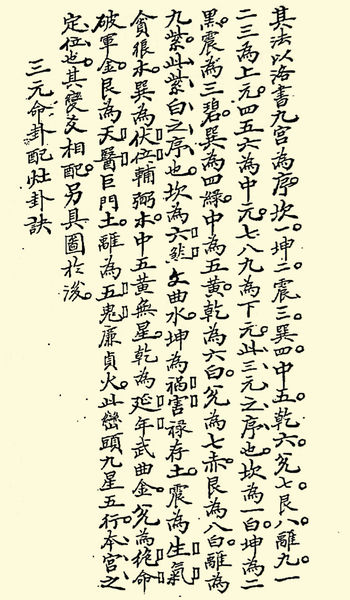 其法以洛書九宮為序。坎一坤二震三巽四中五乾六。兌七艮八。離九。一
二三為上元。四五六為中元。七八九為下元。此三元之序也。坎為一白坤為二
黑。震為三碧。巽為四綠。中為五黃。乾為六白。兌為七赤。艮為八白離為
九紫。此紫白之序也。坎為六煞文曲水。坤為禍害祿存土。震為生氣
貪狼木。巽為伏位輔弼木。中五黃無星。乾為延年武曲金。兌為絕命
破軍金。艮為天醫巨門土。離為五鬼廉貞火。此巒頭九星五行本宮之
定位也。其變爻相配。另具圖於後。
三元命卦配灶卦訣